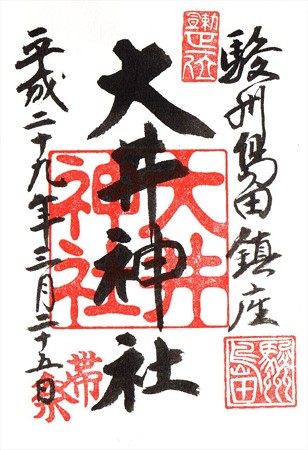 駿州島田鎮座
大井神社
平成二十九年三月二十五日
大井神社
帯祭
駿州島田